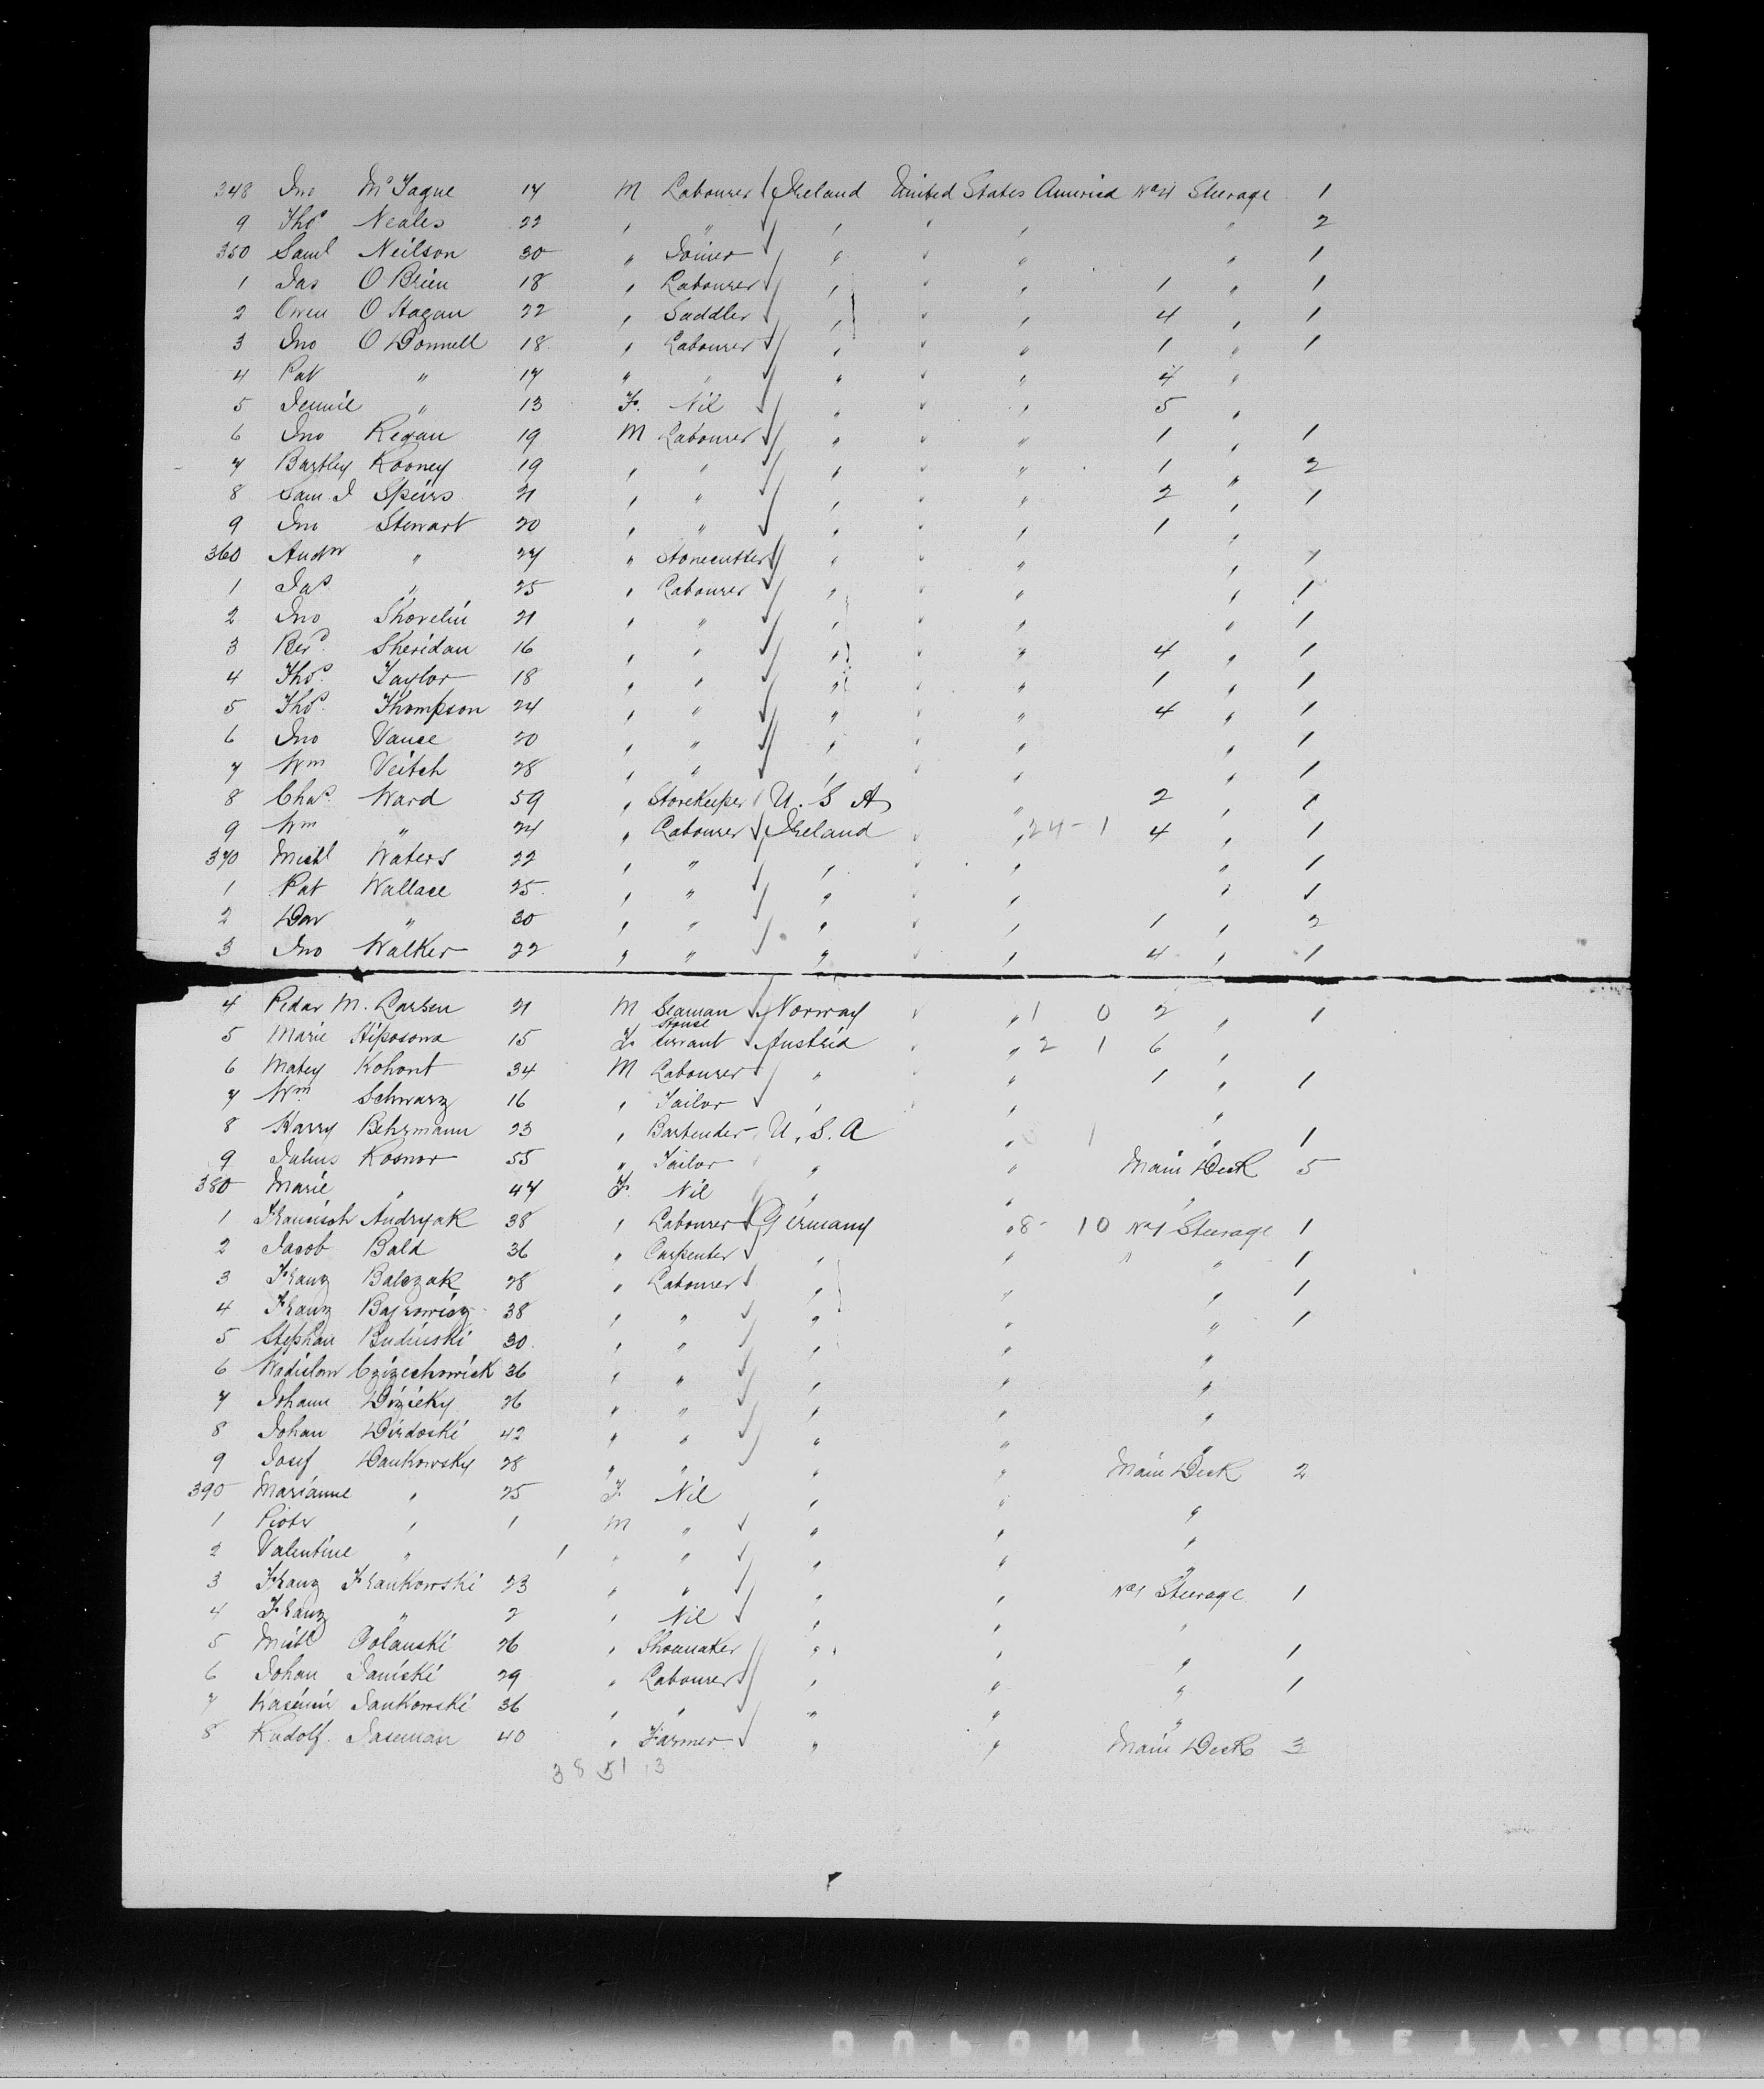 348 Jno McTague 17 M Labourer Ireland United States America No 4 Steerage 1
9 Thos Neales 22 " " " " " " 2
350 Saml Neilson 30 " Joiner " " " " 1
1 Jas O Brien 18 " Labourer " " " 1 " 1
2 Owen O Hagan 22 " Saddler " " " 4 " 1
3 Jno O Donnell 18 " Labourer " " " 1 " 1
4 Pat " 17 " " " " " 4 "
5 Jennie " 13 F. Nil " " " 5 "
6 Jno Regan 19 M Labourer " " " 1 " 1
7 Bartley Rooney 19 " " " " " 1 " 2
8 Sam. J Speirs 21 " " " " " 2 " 1
9 Jno Stewart 20 " " " " " 1 "
360 Andw " 27 " Stonecutter " " " " 1
1 Jas " 25 " Labourer " " " " 1
2 Jno Shovelin 21 " " " " " " 1
3 Berd. Sheridan 16 " " " " " 4 " 1
4 Thos. Taylor 18 " " " " " 1 " 1
5 Thos. Thompson 24 " " " " " 4 " 1
6 Jno Vance 20 " " " " " " 1
7 Wm Veitch 28 " " " " " " 1
8 Chas. Ward 59 " Storekeeper U. S A " 2 " 1
9 Wm " 24 " Labourer Ireland " " 24 - 1 4 " 1
370 Michl Waters 22 " " " " " " 1
1 Pat Wallace 25 " " " " " " 1
2 Dav " 30 " " " " " 1 " 2
3 Jno Walker 22 " " " " " 4 " 1
4 Pedar M. Larsen 21 M Seaman Norway " " 1 0 2 " 1
5 Marie Stiposova 15 F. House Servant Austria " " 2 1 6 "
6 Matey Kohont 34 M Labourer " " " 1 " 1
7 Wm Schwarz 16 " Tailor " " " "
8 Harry Behrmann 23 " Bartender U. S. A " 1 " 1
9 Julius Kosnor 55 " Tailor " " Main Deck 5
380 Marie " 47 F. Nil " " "
1 Francisch Andryak 38 " Labourer Germany " 8 - 10 No 1 Steerage 1
2 Jacob Bald 36 " Carpenter " " " " 1
3 Franz Balezak 28 " Labourer " " " 1
4 Franz Bajrowicz 38 " " " " " 1
5 Stephan Budinski 30 " " " " "
6 Wadislow Czizechowick 36 " " " " "
7 Johann Dizicky 26 " " " " "
8 Johan Dirdoski 42 " " " " "
9 Josef Dankowsky 28 " " " " Main Deck 2
390 Marianne " 25 F. Nil " " "
1 Piotr " 1 M " " " "
2 Valentine " 1 " " " " "
3 Franz Frankowski 23 " " " " No 1 Steerage 1
4 Franz " 2 " Nil " " "
5 Michl Golanski 26 " Shoemaker " " " 1
6 Johan Janiski 29 " Labourer " " " 1
7 Kasimir Jankowski 36 " " " " "
8 Rudolf Jaseman 40 " Farmer " " Main Deck 3
38 51 13
DUPONT SAFETY